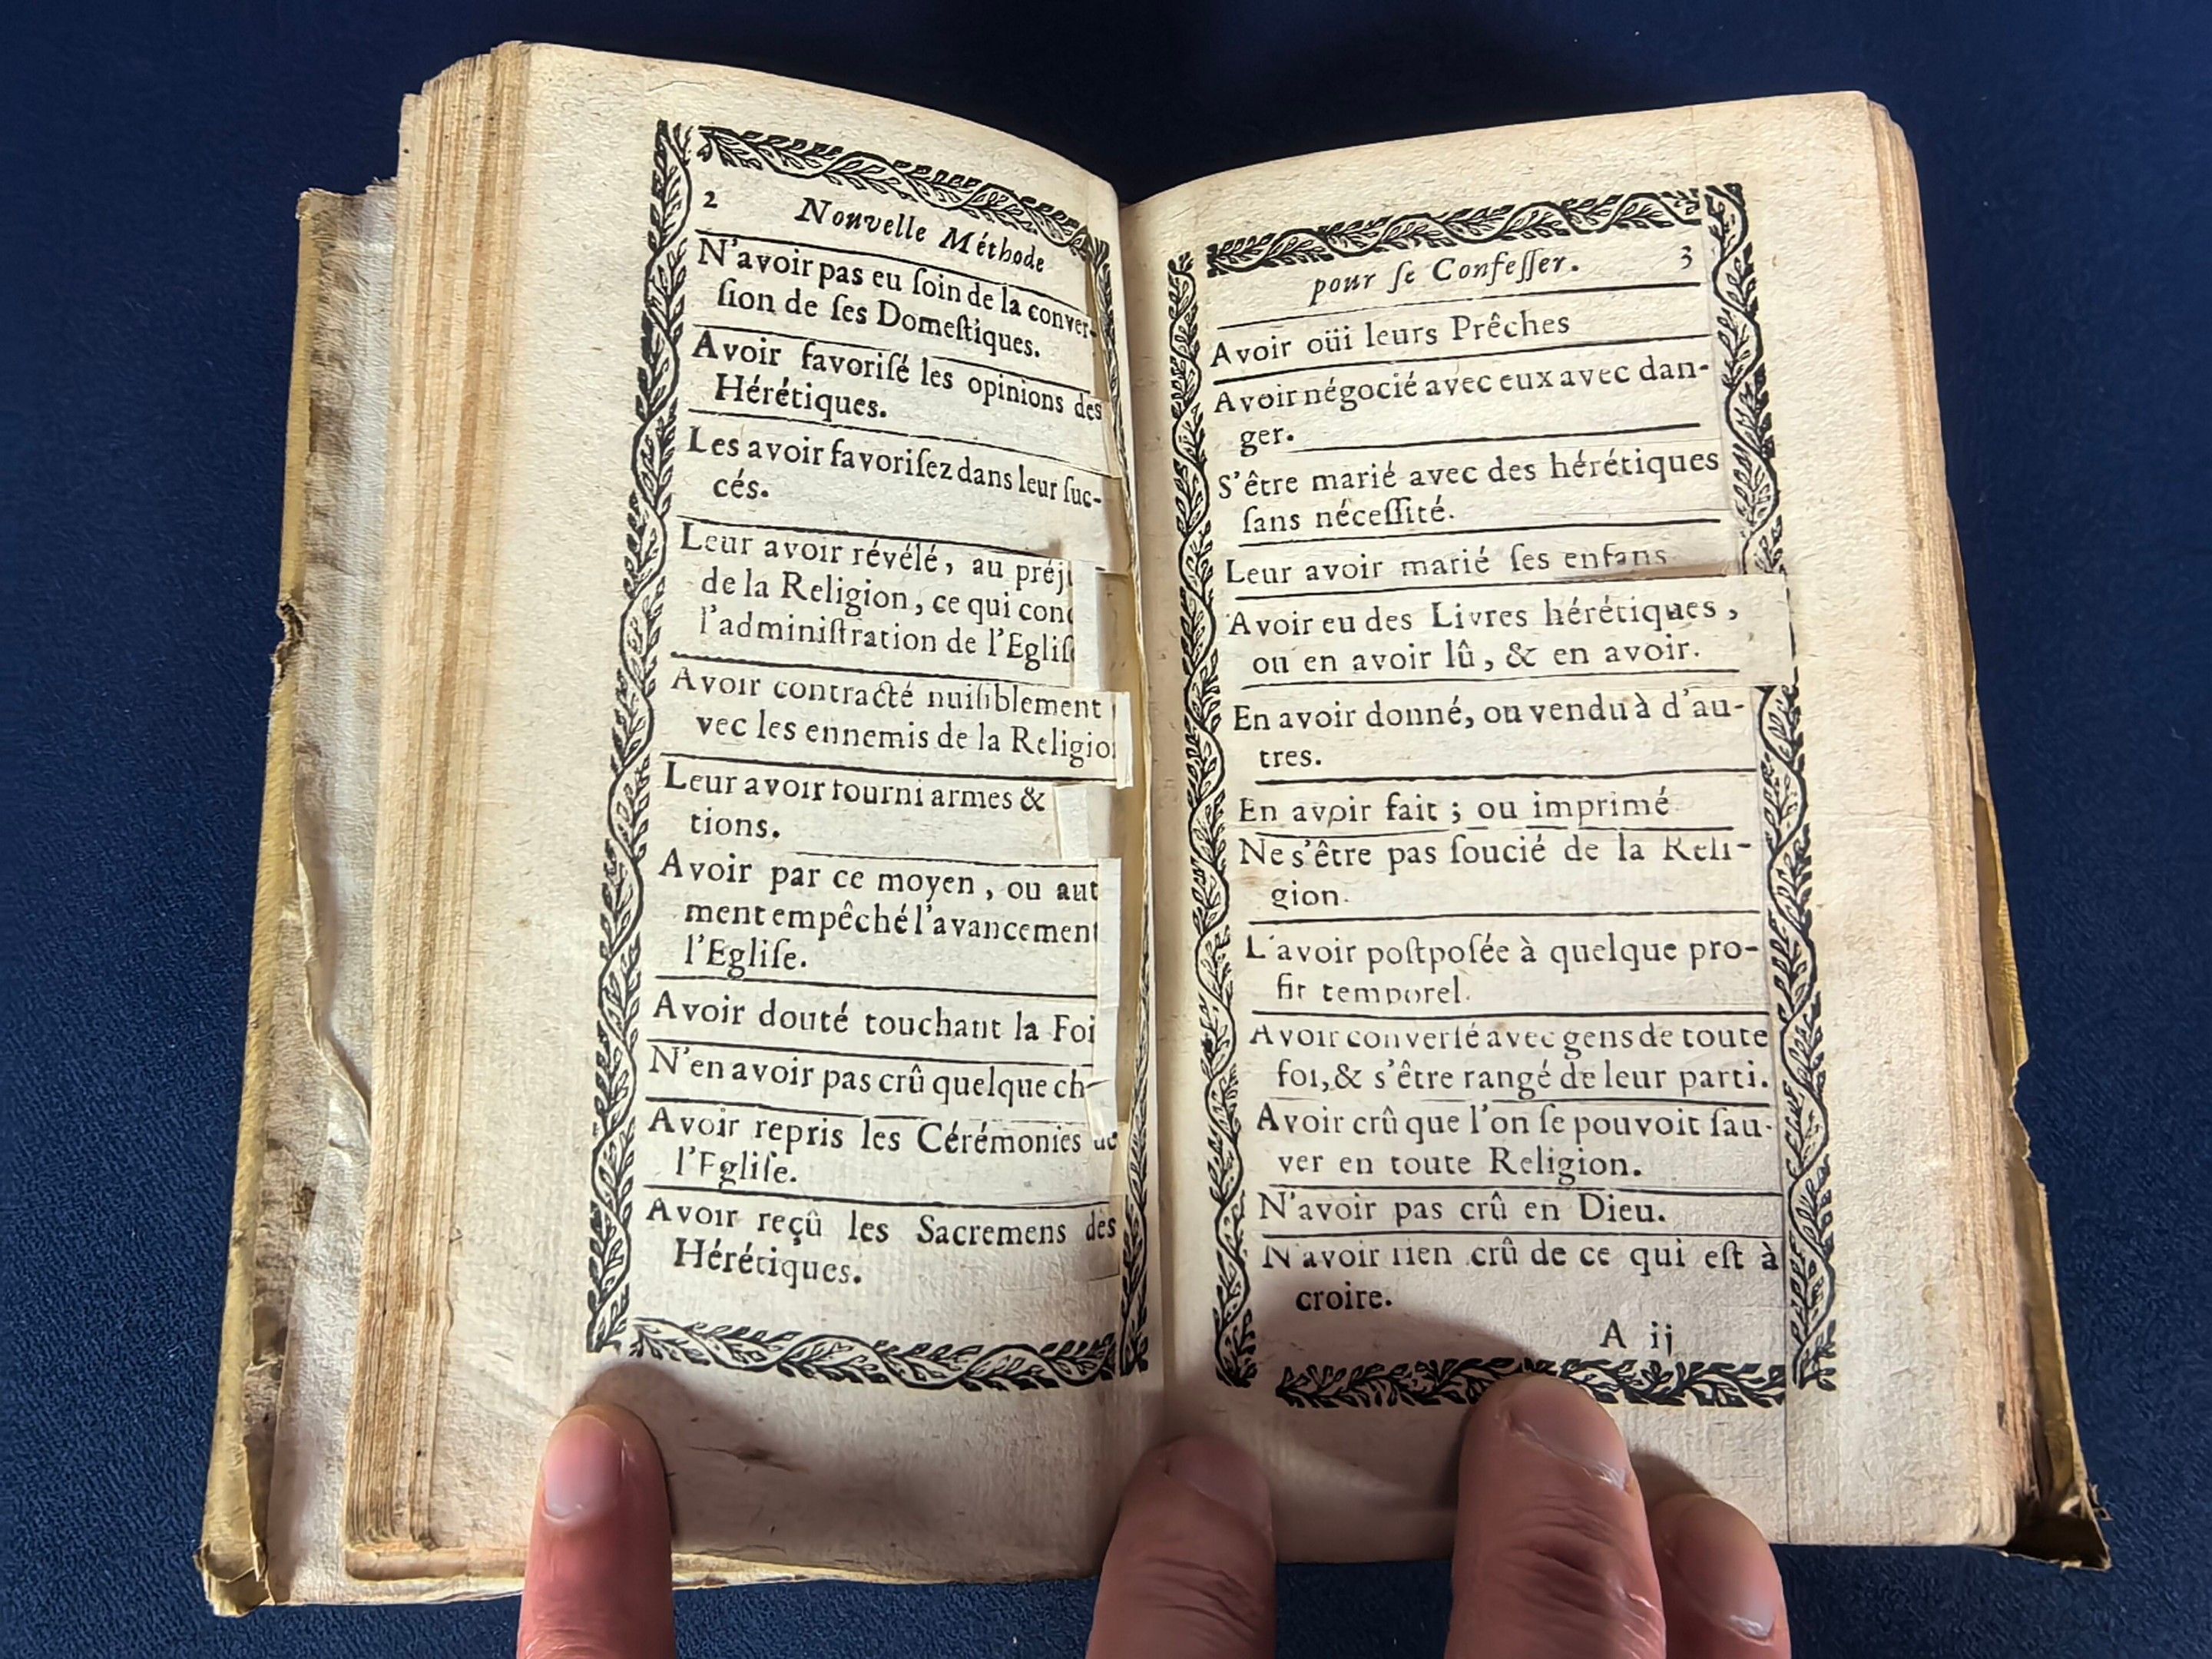 2 Nouvelle Méthode
N'avoir pas eu ſoin de la conver-
ſion de ſes Domeſtiques.
Avoir favoriſé les opinions des
Hérétiques.
Les avoir favoriſez dans leur ſuc-
cés.
Leur avoir révélé, au
de la Religion, ce qui
l'adminiſtration de
Avoir contracté nuiſiblement
vec les ennemis de la
Leur avoir fourni armes &
tions.
Avoir par ce moyen, ou
ment empêché
l'Egliſe.
Avoir douté touchant la Foi
N'en avoir pas crû quelque
Avoir repris les Cérémonies de
l'Egliſe.
Avoir reçû les Sacremens des
Hérétiques.
pour ſe Confeſſer. 3
Avoir oüi leurs Prêches
Avoir négocié avec eux avec dan-
ger.
S'être marié avec des hérétiques
ſans néceſſité.
Leur avoir marié ſes enfans
Avoir eu des Livres hérétiques,
ou en avoir lû, & en avoir.
En avoir donné, ou vendu à d'au-
tres.
En avoir fait ; ou imprimé
Ne s'être pas ſoucié de la Reli-
gion.
L'avoir poſtpoſée à quelque pro-
fit temporel.
Avoir converſé avec gens de toute
foi, & s'être rangé de leur parti.
Avoir crû que l'on ſe pouvoit ſau-
ver en toute Religion.
N'avoir pas crû en Dieu.
N'avoir rien crû de ce qui eſt à
croire.
A ij